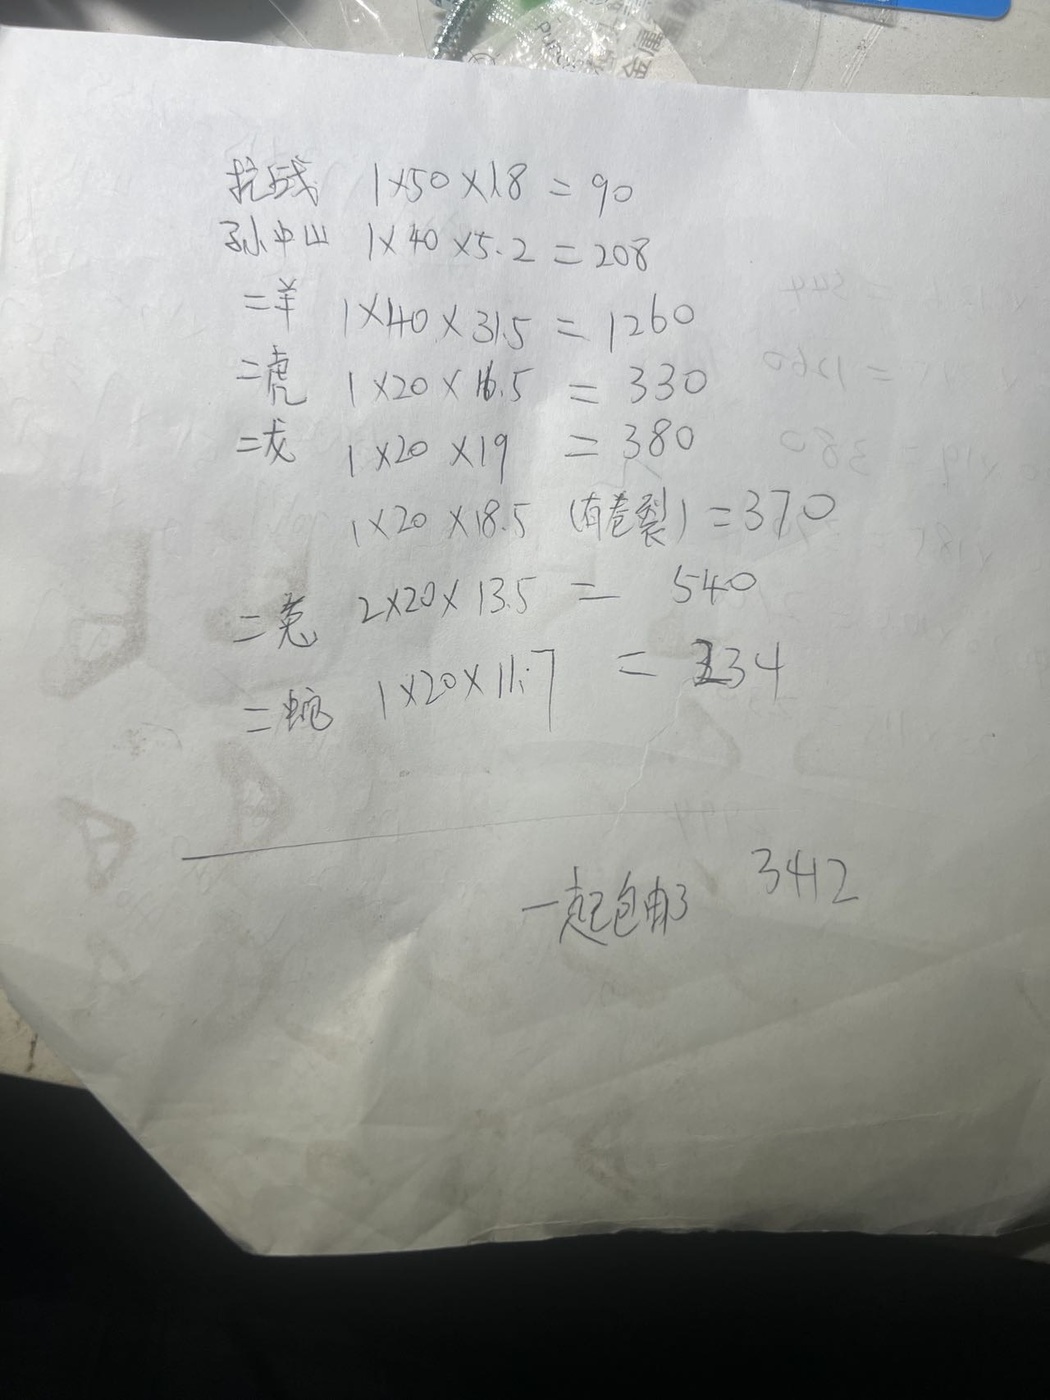 金属
抗战 1×50×18=90
孙中山 1×40×5.2=208
二羊 1×40×31.5=1260
二虎 1×20×16.5=330
二龙 1×20×19=380
1×20×18.5 (有卷裂)=370
二兔 2×20×13.5=540
二蛇 1×20×11.7=234
一起包邮3412